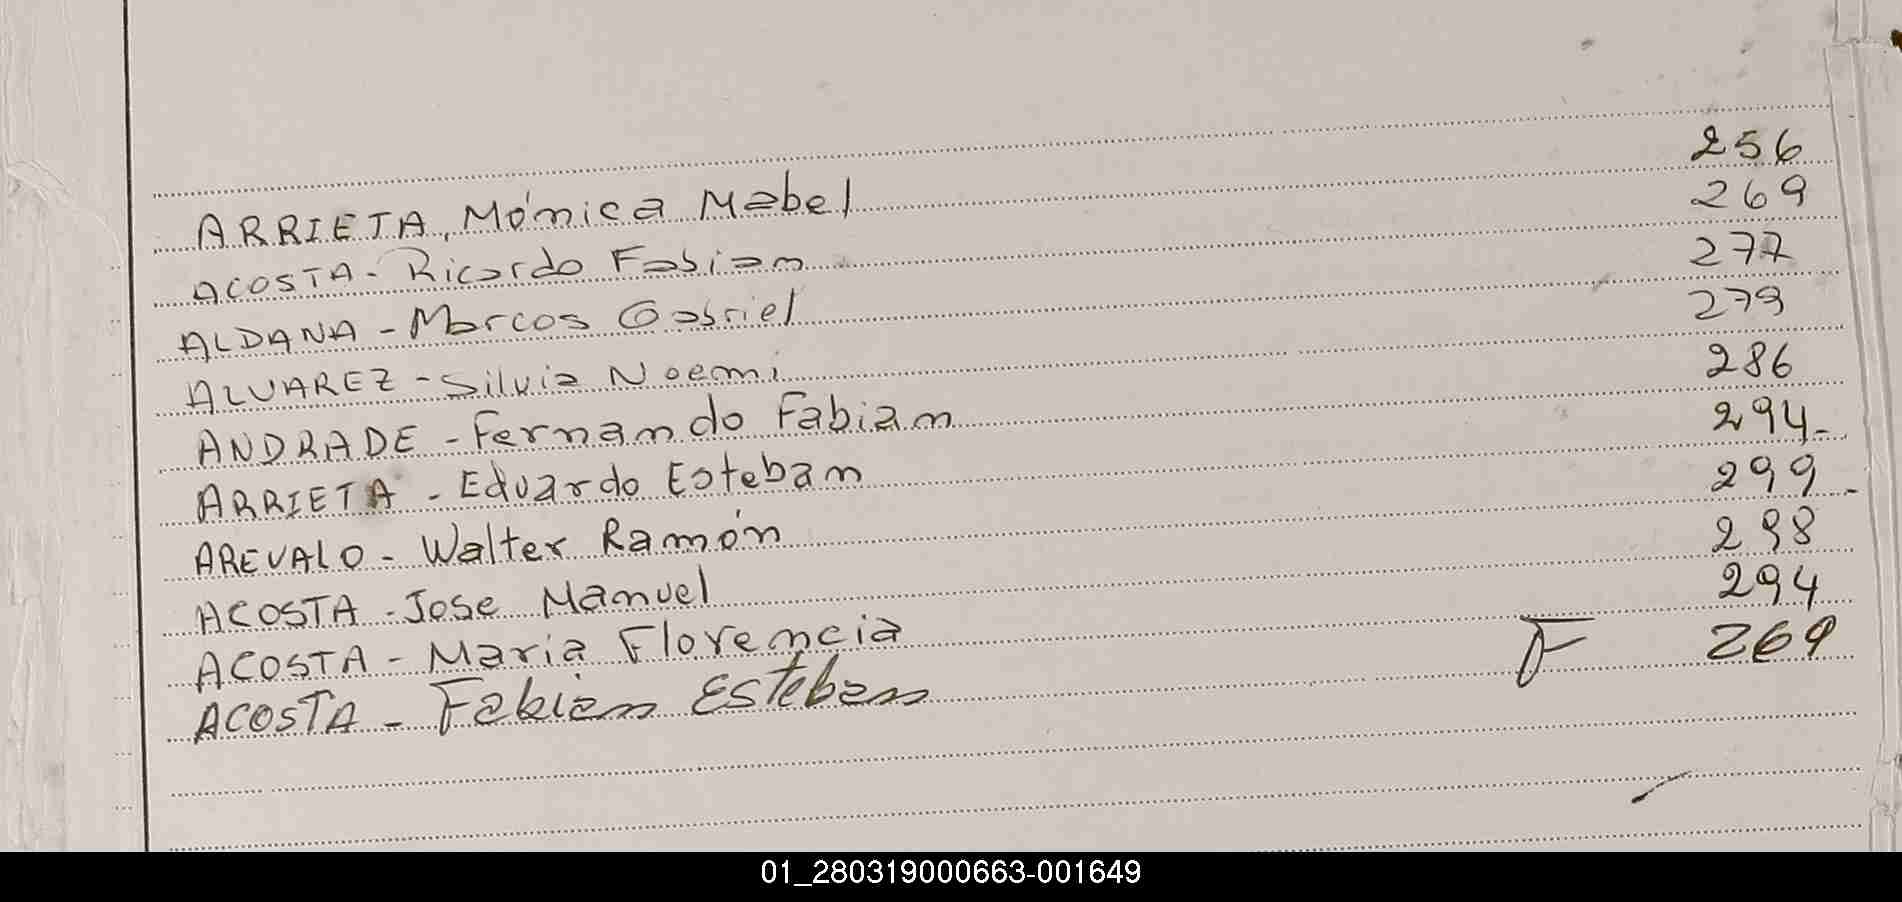 ARRIETA, Mónica Mabel 256
ACOSTA - Ricardo Fabian 269
ALDANA - Marcos Gabriel 277
ALVAREZ - Silvia Noemi 279
ANDRADE - Fernando Fabian 286
ARRIETA - Eduardo Esteban 294-
AREVALO - Walter Ramón 299-
ACOSTA - Jose Manuel 298
ACOSTA - Maria Florencia 294
ACOSTA - Fabian Esteban F 269
01_280319000663-001649